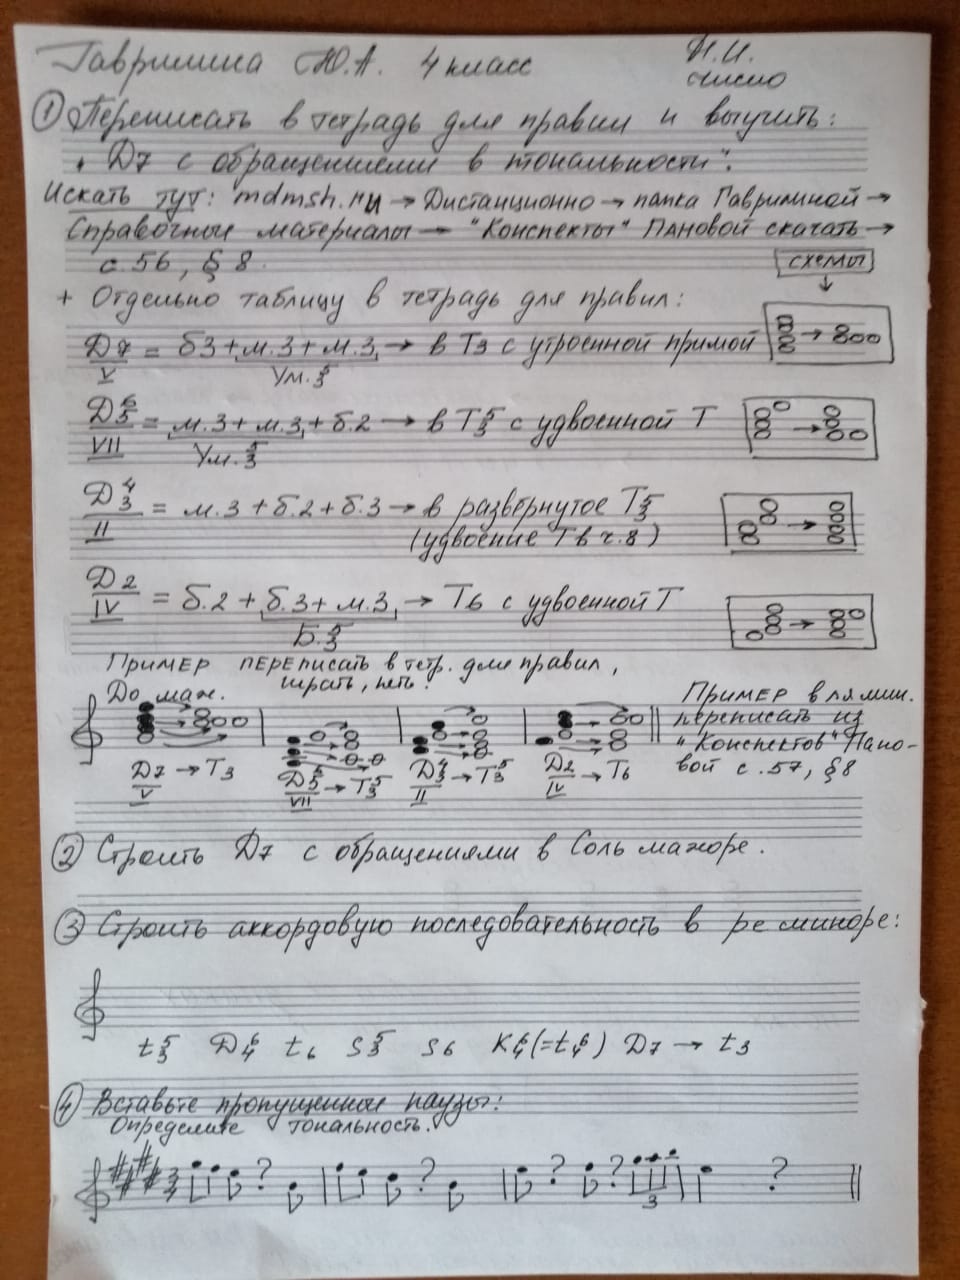 Гаврилина Ю.А. 4 класс
Н.И.
число
① Переписать в тетрадь для правил и выучить:
"Д7 с обращениями в тональности".
Искать тут: mdmsh.ru → Дистанционно → папка Гаврилиной →
Справочные материалы → "Конспекты" Пановой скачать →
с.56, § 8.
схемы
+ Отдельно таблицу в тетрадь для правил:
Д7 = б3 + м.3 + м.3 → в Т3 с утроенной примой
V
Ум.5/3
Д6/5 = м.3 + м.3 + б.2 → в Т5/3 с удвоенной Т
VII
Ум.5/3
Д4/3 = м.3 + б.2 + б.3 → в развёрнутое Т5/3
II
(удвоение Т в ч.8)
Д2 = б.2 + б.3 + м.3 → Т6 с удвоенной Т
IV
Б.5/3
Пример переписать в тетр. для правил,
играть, петь.
До маж.
Пример в ля мин.
переписать из
"Конспектов" Пано-
вой с.57, § 8
Д7 → Т3 Д6/5 → Т5/3 Д4/3 → Т5/3 Д2 → Т6
V VII II IV
② Строить Д7 с обращениями в Соль мажоре.
③ Строить аккордовую последовательность в ре миноре:
t5/3 Д6/4 t6 S5/3 S6 K6/4 (=t6/4) Д7 → t3
④ Вставьте пропущенные паузы:
Определите тональность.
3/4 ? ? ? ? 3 ?